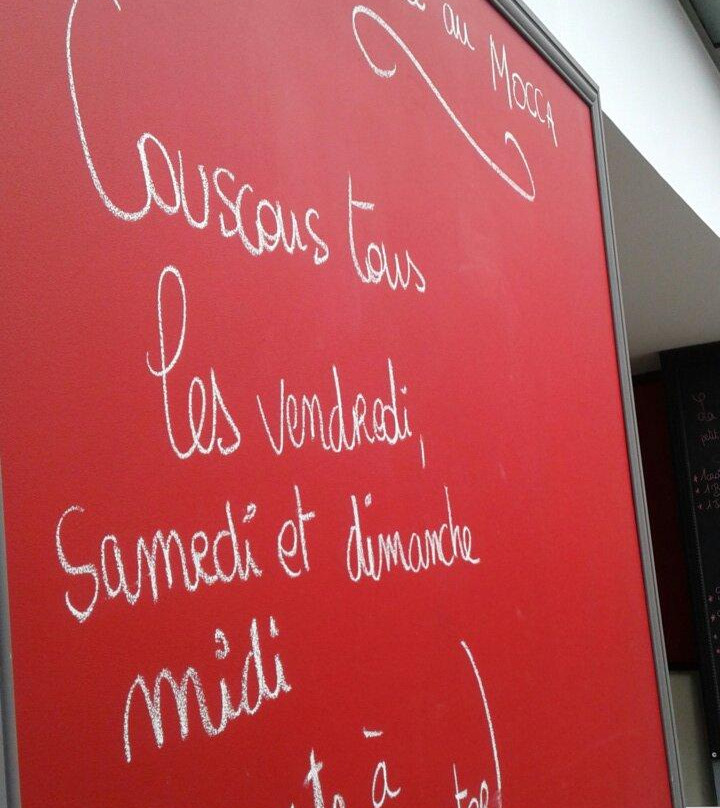 au MOCCA
Couscous tous
les vendredi,
Samedi et dimanche
midi
à